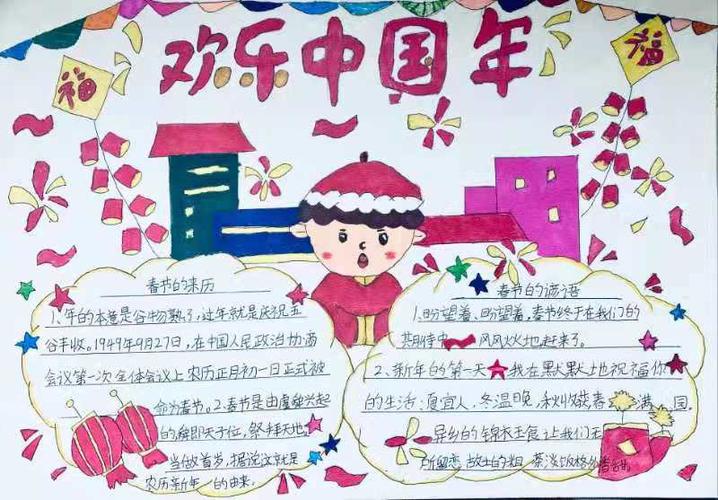 欢乐中国年
福
福
春节的来历
1、年的本意是谷物熟了,过年就是庆祝五
谷丰收。1949年9月27日,在中国人民政治协商
会议第一次全体会议上农历正月初一日正式被
命为春节。2、春节是由虞舜兴起
的,舜即天子位,祭拜天地,
当做首岁,据说这就是
农历新年的由来。
春节的谚语
1、盼望着、盼望着,春节终于在我们的
期待中风风火火地赶来了。
2、新年的第一天我在默默地祝福你
的生活:夏宜人、冬温晚、秋硕春满园。
异乡的锦衣玉食让我们无
所留恋故土的粗茶淡饭格外香甜